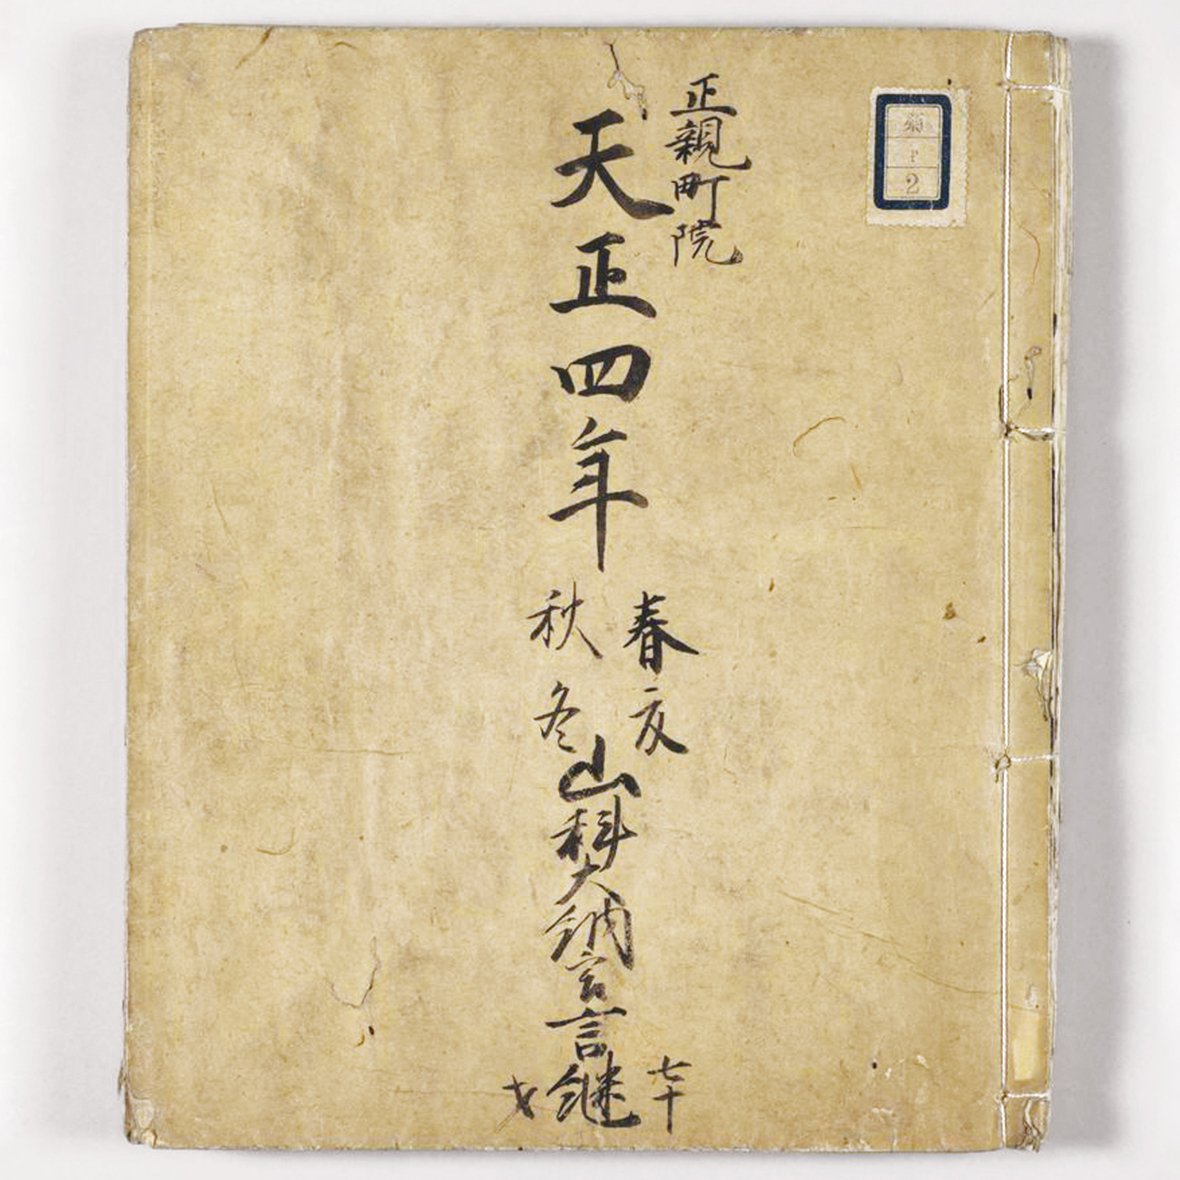 正親町院
天正四年
春夏
秋冬
山科大納言言継
七十
才
2